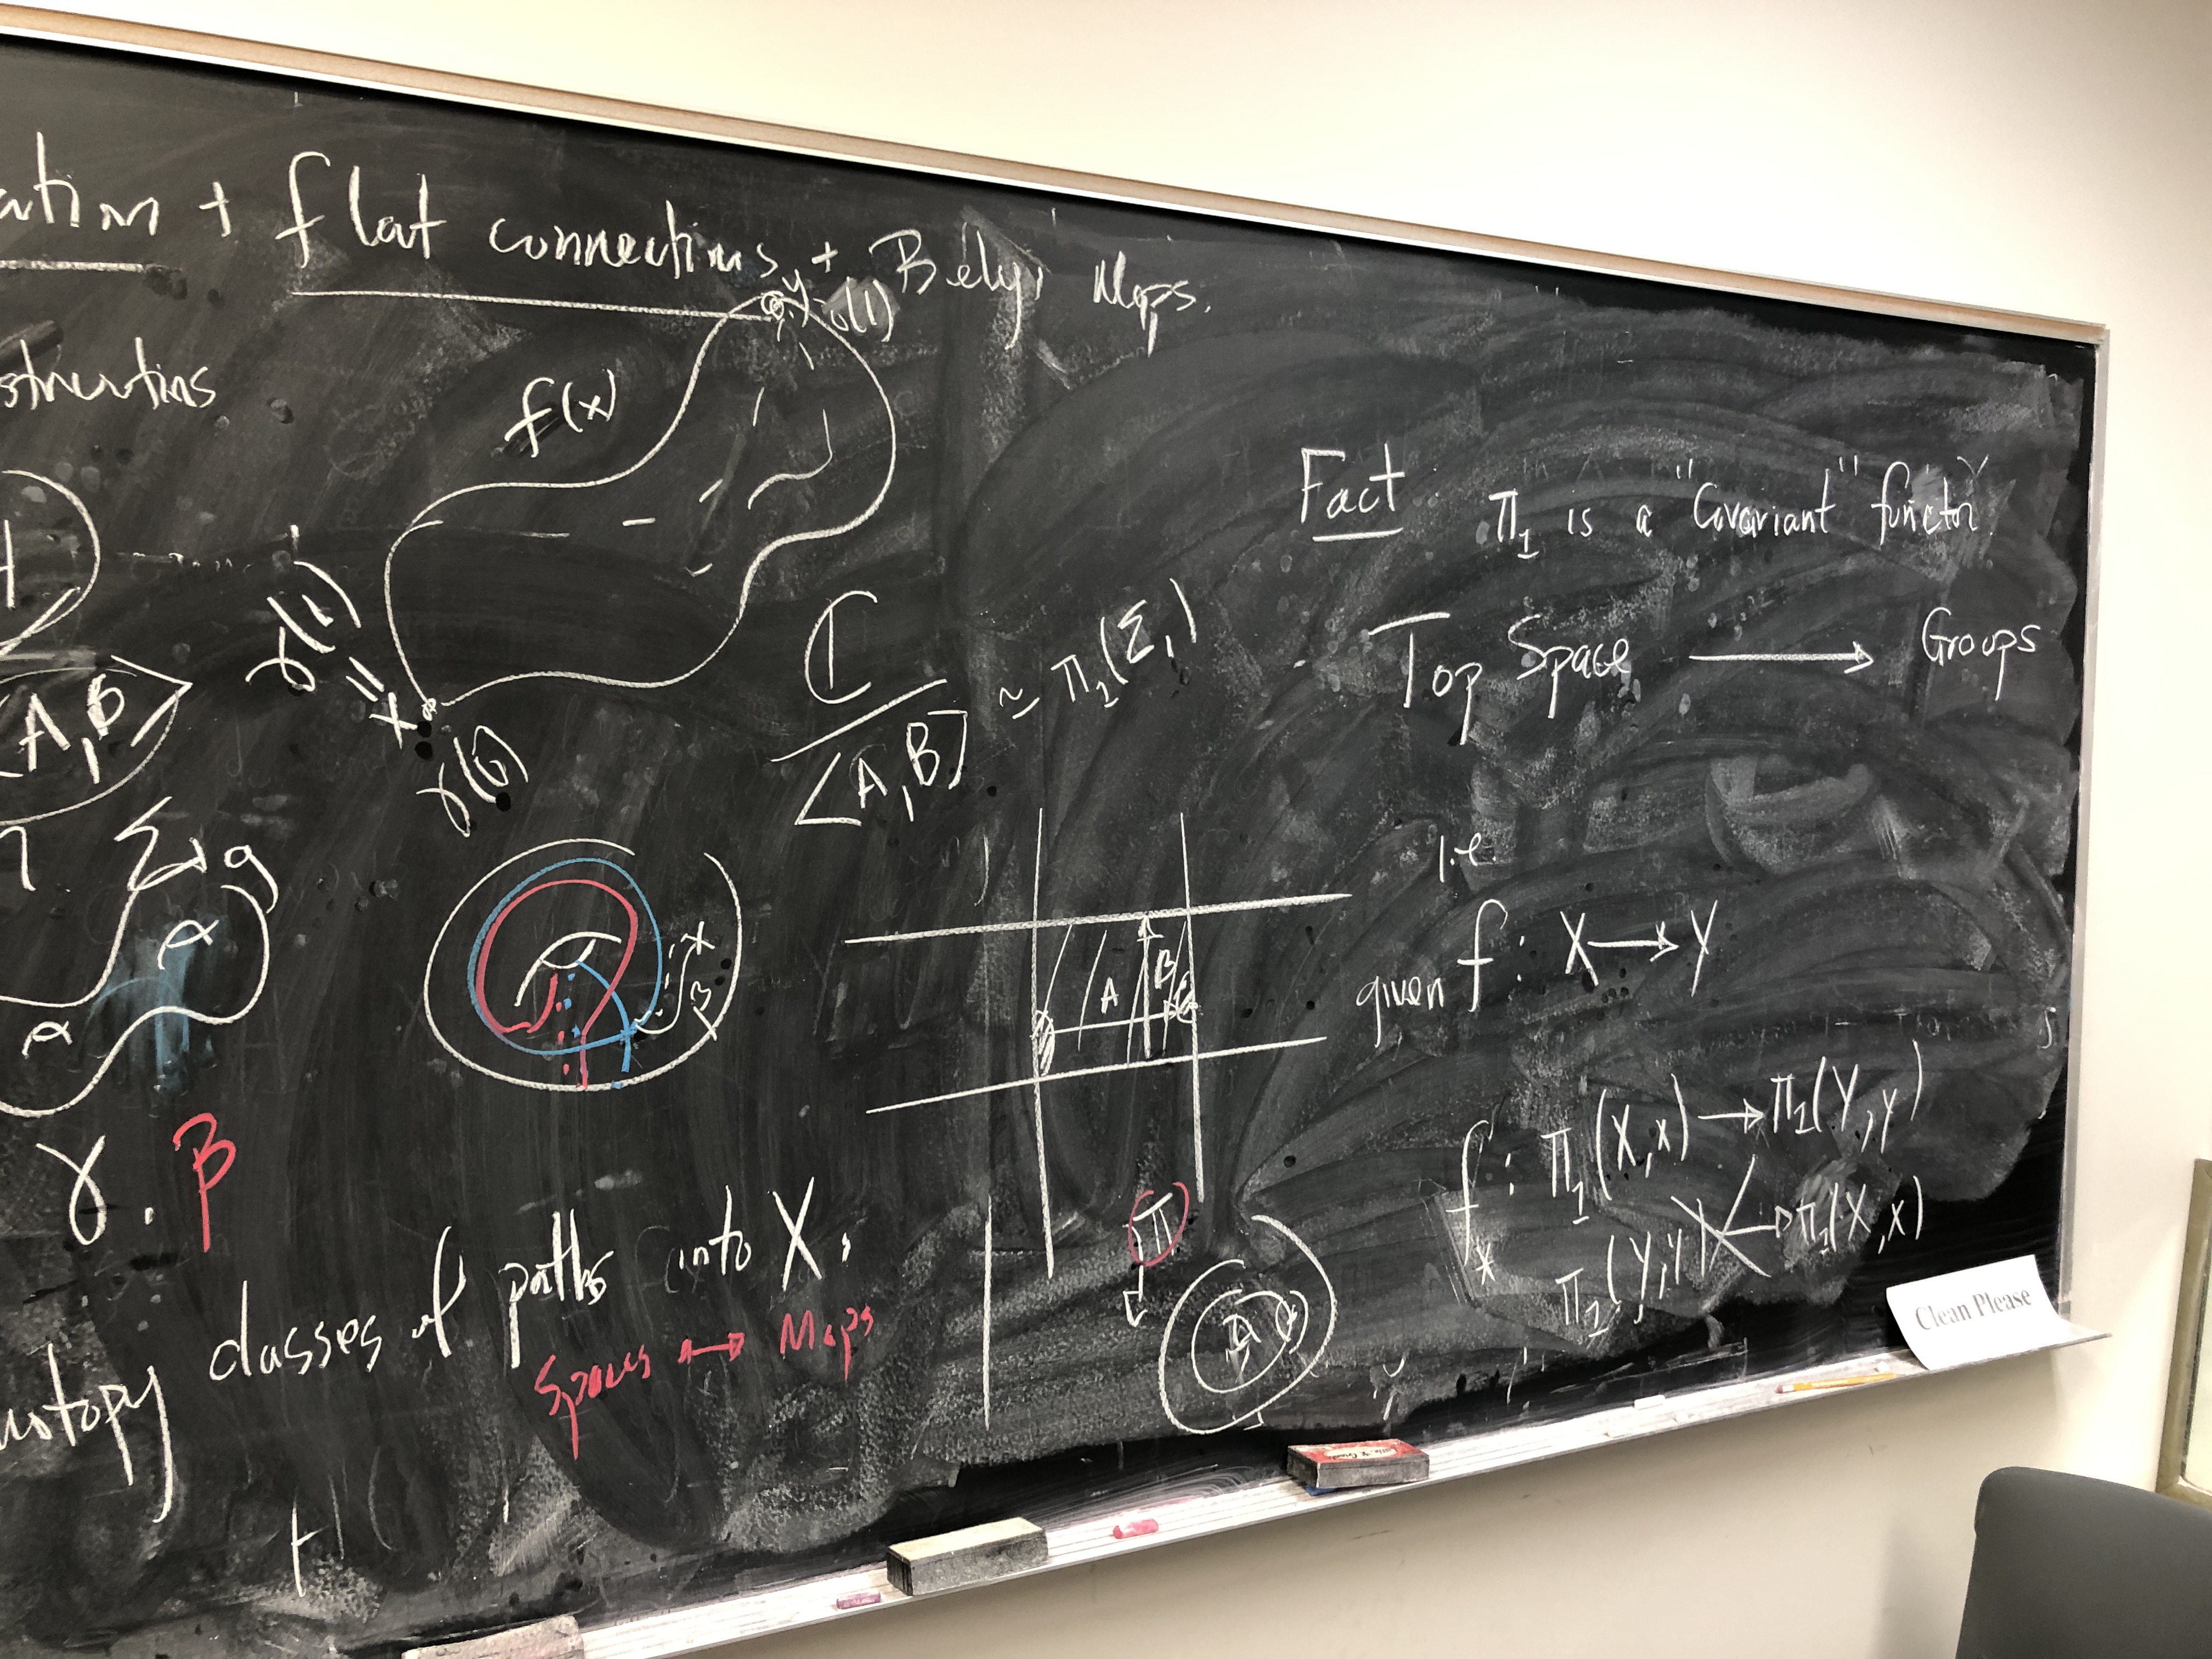 + flat connections + Belyi Maps.
f(x)
γ(1)
=
x
γ(0)
ℂ / ⟨A,B] ≃ π₁(Σ₁)
A,B⟩
Σg
α
α
γ . β
x
β
A
B
classes of paths into X.
Spaces ↔ Maps
π
Fact π₁ is a "Covariant" functor
Top Space ⟶ Groups
i.e
given f : X ⟶ Y
f_* : π₁(X,x) → π₁(Y,y)
π₁(Y,y) → π₁(X,x)
Clean Please